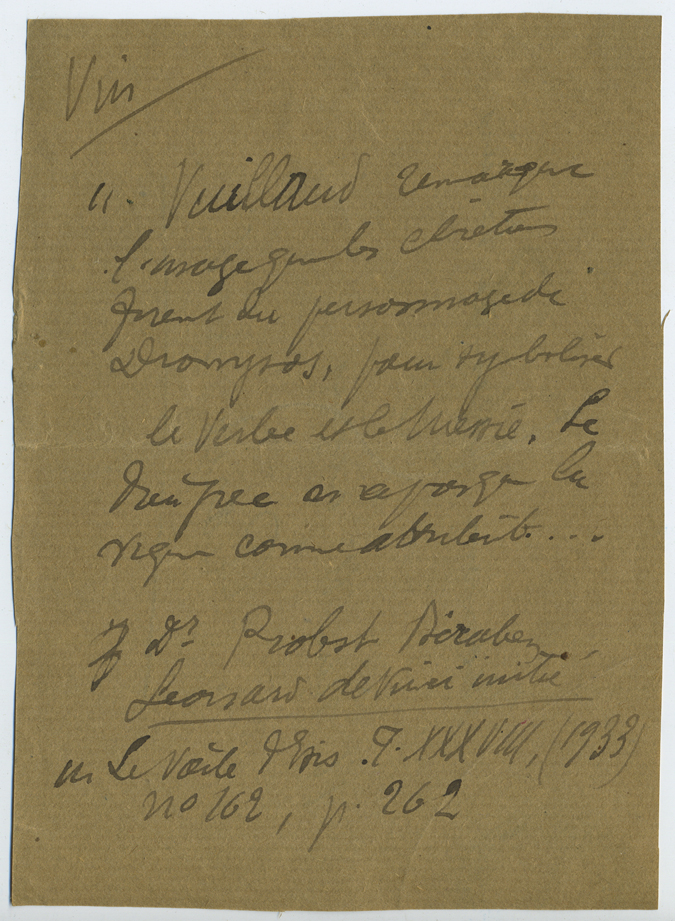 Vin
". Vuillaud remarque
l'usage que les chrétiens
firent du personnage de
Dionysos, pour symboliser
le Verbe et le Messie. Le
dieu grec n'a que la
vigne comme attribut...
Dr Probst Biraben,
Léonard de Vinci initié
in Le Voile d'Isis. T. XXXVIII, (1933)
no 162, p. 262